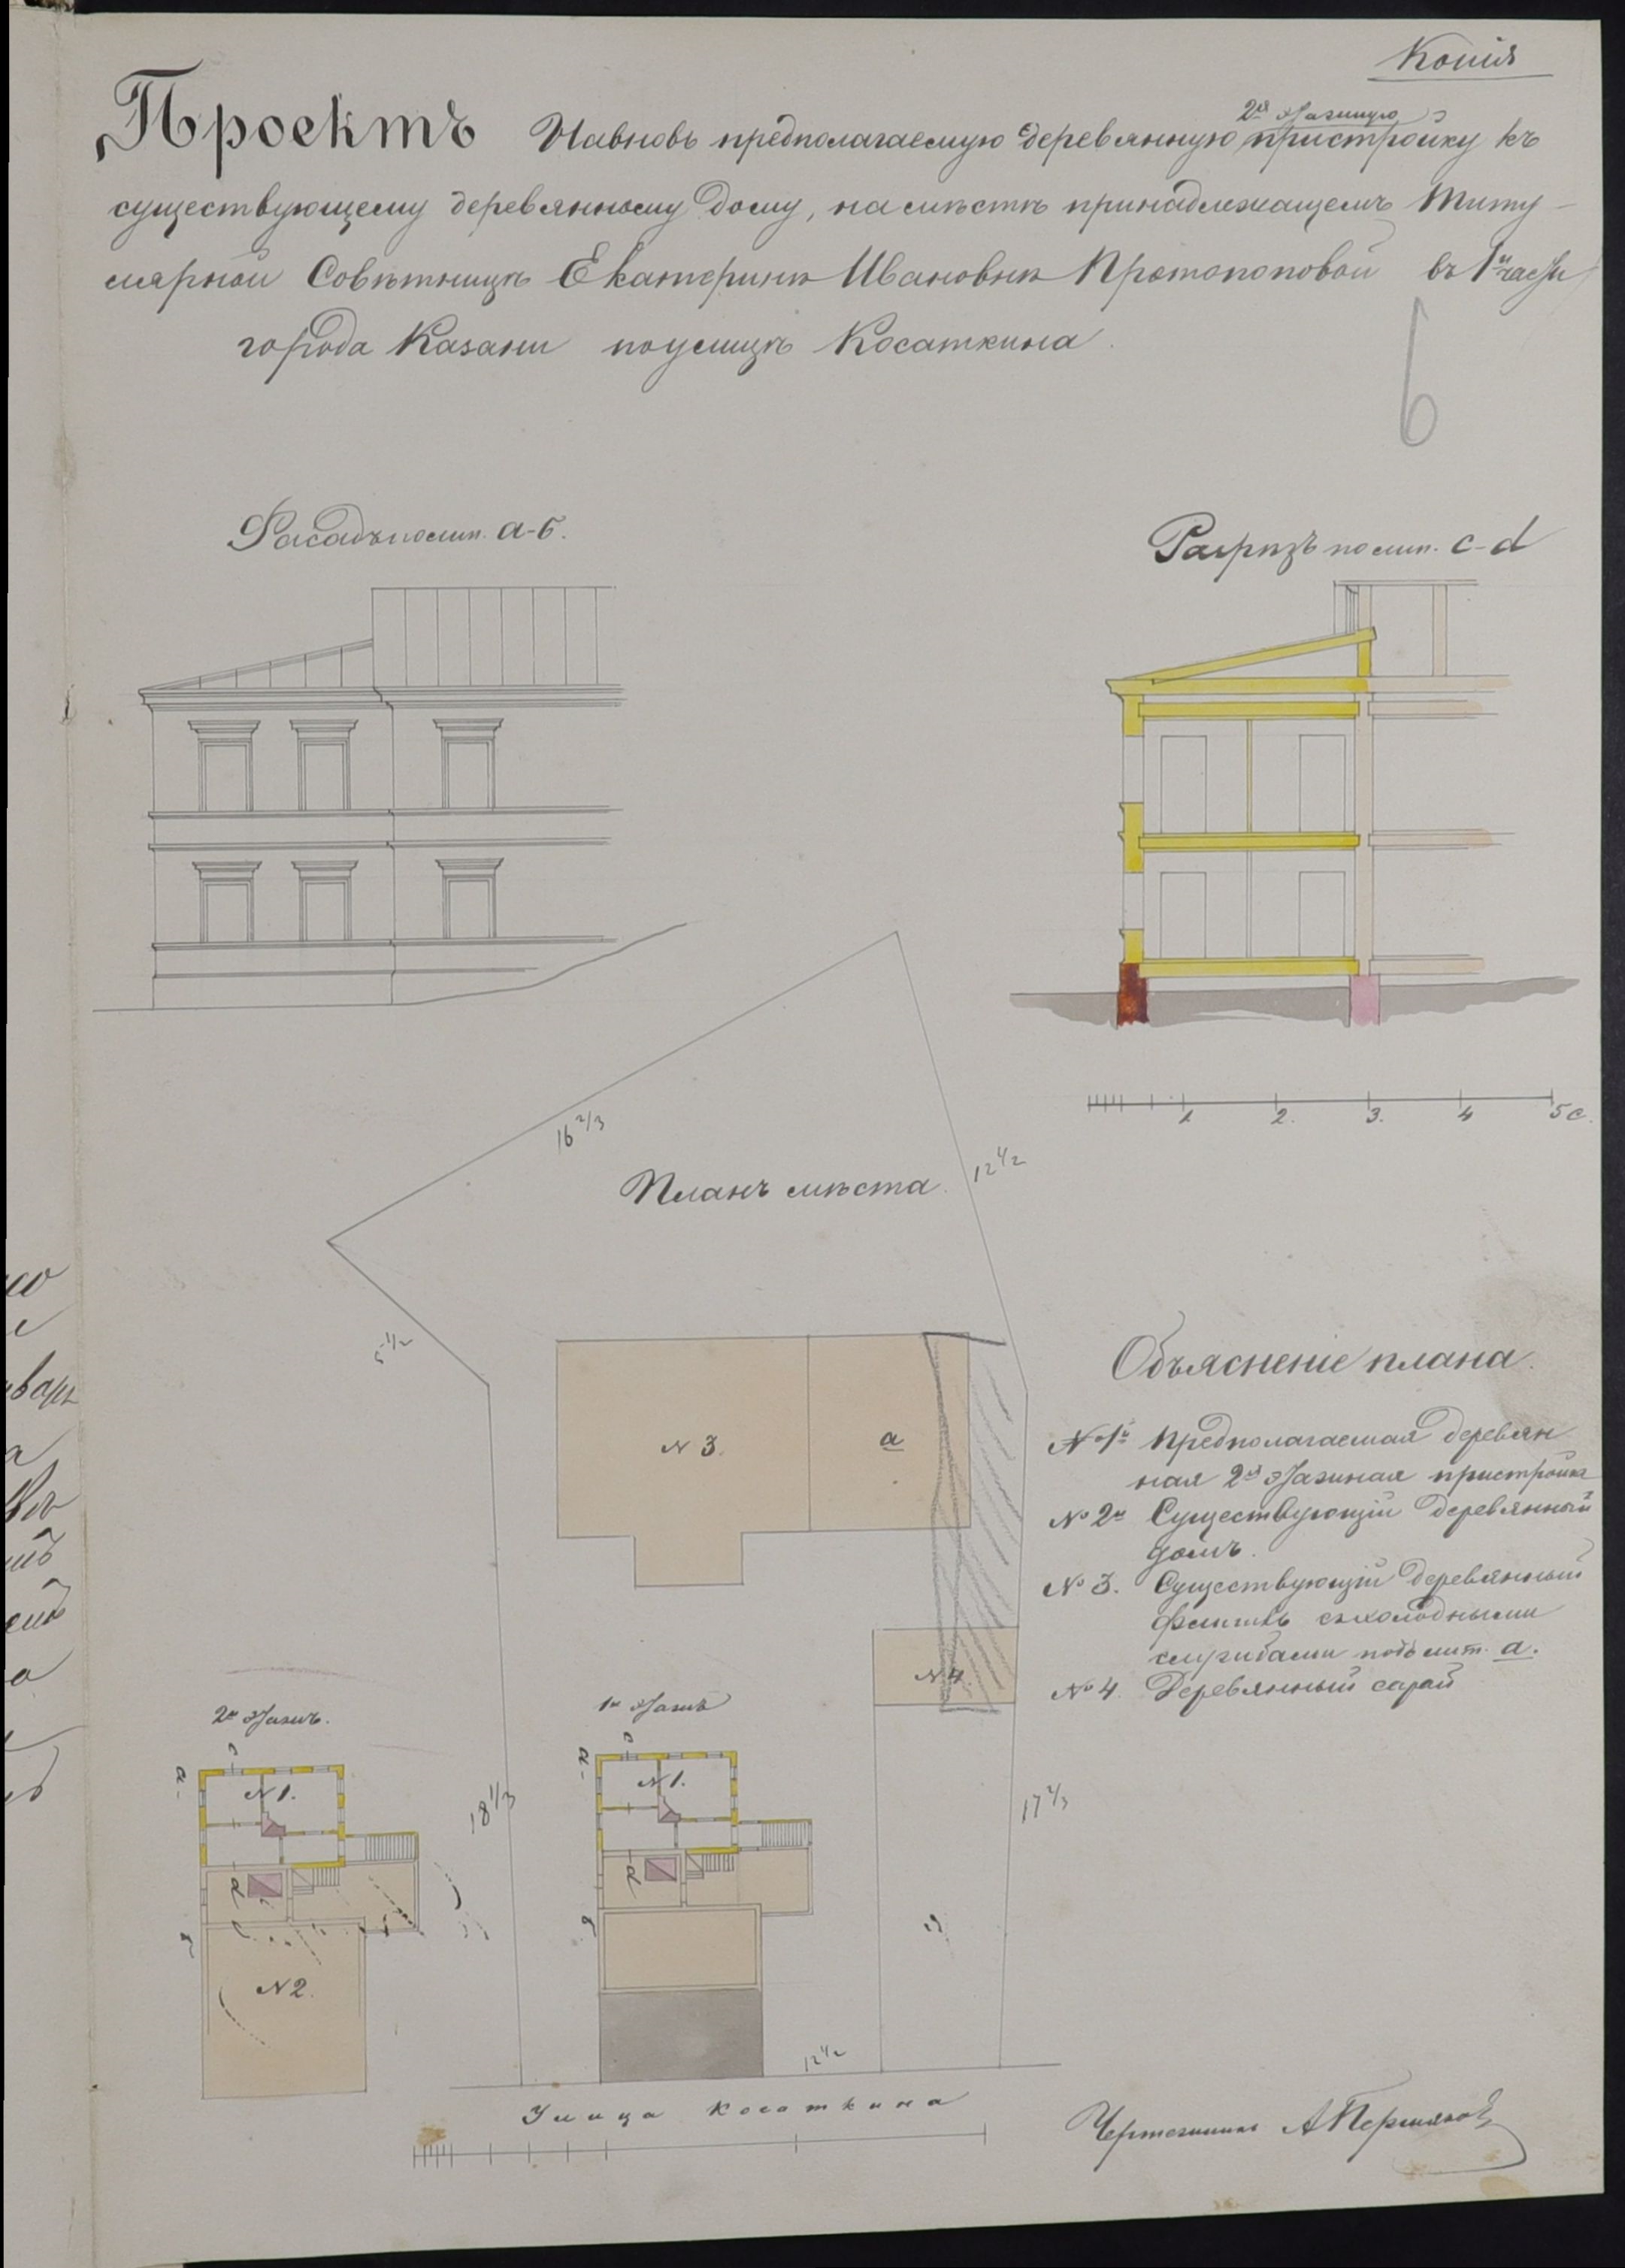 Копія
Проектъ На вновь предполагаемую деревянную 2хъ этажную пристройку къ
существующему деревянному дому, на мѣстѣ принадлежащемъ Титу-
лярной Совѣтницѣ Екатеринѣ Ивановнѣ Протопоповой въ 1й части
города Казани по улицѣ Косаткина.
6
Фасадъ по лин. а-б.
Разрѣзъ по лин. c-d
1 2. 3. 4 5 с.
16 2/3
12 1/2
Планъ мѣста.
5 1/2
N 3.
а
Объясненіе плана.
№ 1й Предполагаемая деревян
ная 2хъ этажная пристройка
№ 2й Существующій деревянный
домъ.
№ 3. Существующій деревянный
флигель съ холодными
службами подъ лит. а.
№ 4. Деревянный сарай
N 4.
2й этажъ.
1й этажъ
N 1.
N 1.
18 1/3
17 2/3
N 2.
12 1/2
Улица Косаткина
Чертежникъ А Пермяковъ